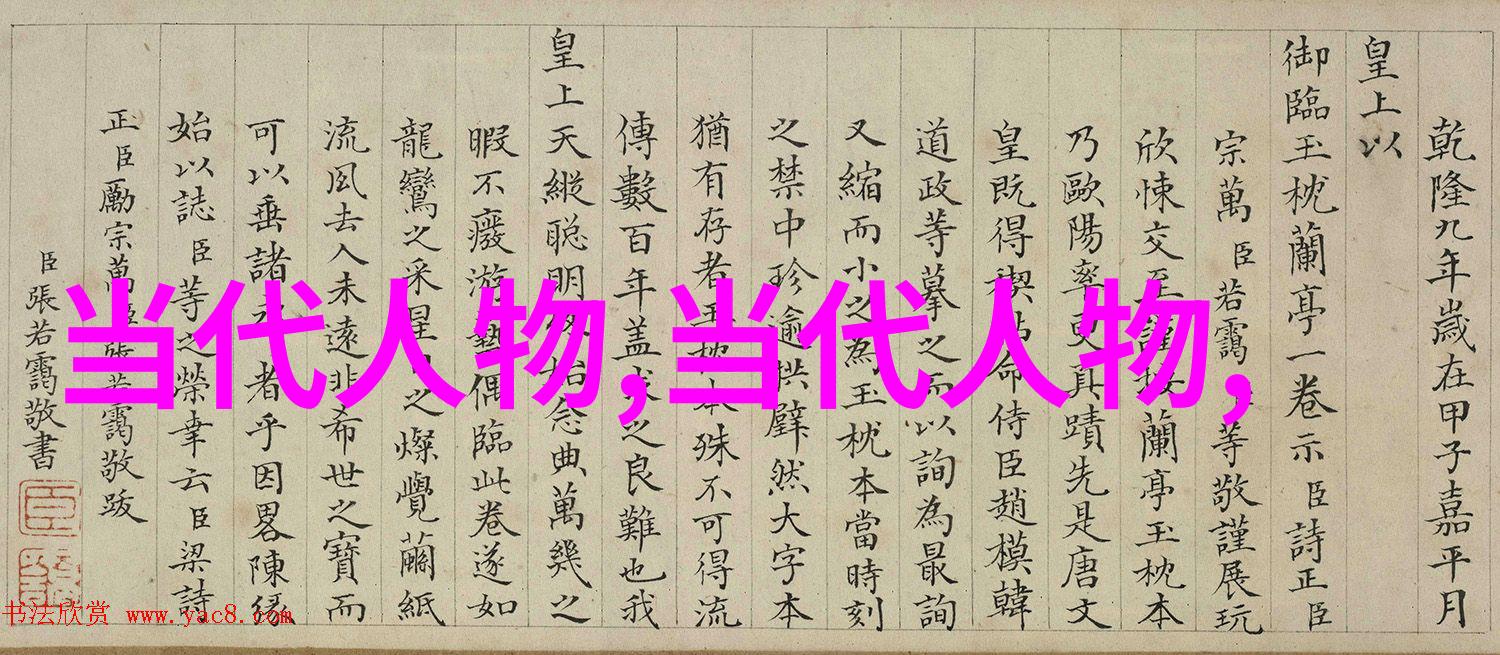 乾隆九年歲在甲子嘉平月
皇上以
御臨玉枕蘭亭一卷示臣詩正臣
宗萬臣若靄臣等敬謹展玩
欣悚交至謹按蘭亭玉枕本
乃歐陽率更真蹟先是唐文
皇既得禊帖命侍臣趙模韓
道政等摹之而以詢為最詢
又縮而小之為玉枕本當時刻
之禁中珍逾拱璧然大字本
猶有存者玉枕本殊不可得流
傳數百年蓋求之良難也我
皇上天縱聰明終始念典萬幾之
暇不癈游藝偶臨此卷遂如
龍鸞之采星日之燦覺繭紙
流風去人未遠非希世之寶而
可以垂諸永者乎因畧陳緣
始以誌臣等之榮幸云臣梁詩
正臣勵宗萬臣張若靄敬跋
臣張若靄敬書
臣
当代人物,当代人物,
书法欣赏 www.yac8.com